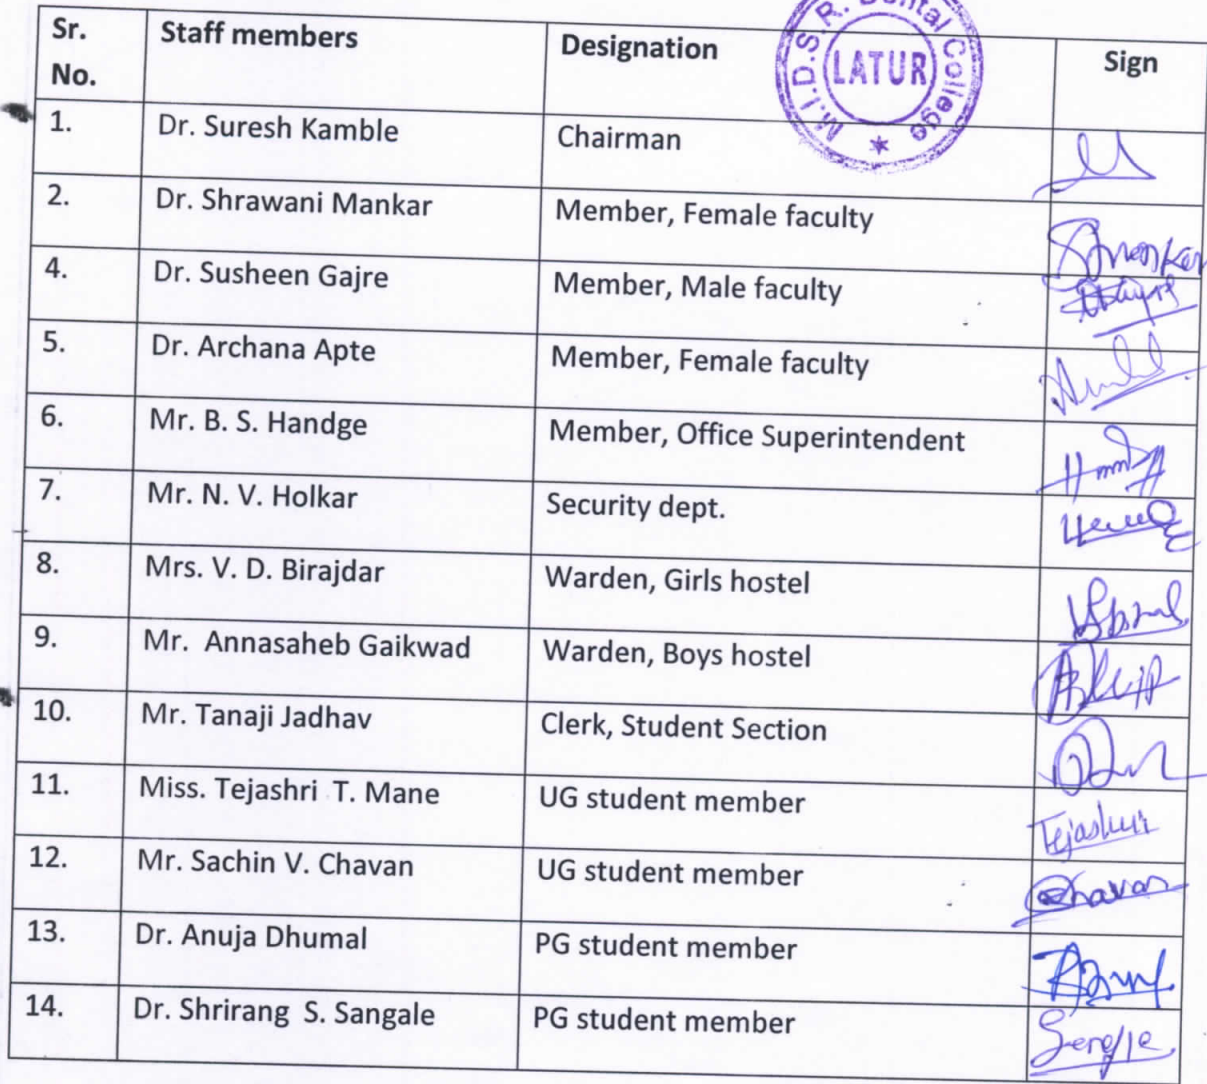 M.I.D.S.R. Dental College
LATUR
Sr. No. Staff members Designation Sign
1. Dr. Suresh Kamble Chairman
2. Dr. Shrawani Mankar Member, Female faculty
4. Dr. Susheen Gajre Member, Male faculty
5. Dr. Archana Apte Member, Female faculty
6. Mr. B. S. Handge Member, Office Superintendent
7. Mr. N. V. Holkar Security dept.
8. Mrs. V. D. Birajdar Warden, Girls hostel
9. Mr. Annasaheb Gaikwad Warden, Boys hostel
10. Mr. Tanaji Jadhav Clerk, Student Section
11. Miss. Tejashri T. Mane UG student member Tejashri
12. Mr. Sachin V. Chavan UG student member Chavan
13. Dr. Anuja Dhumal PG student member
14. Dr. Shrirang S. Sangale PG student member